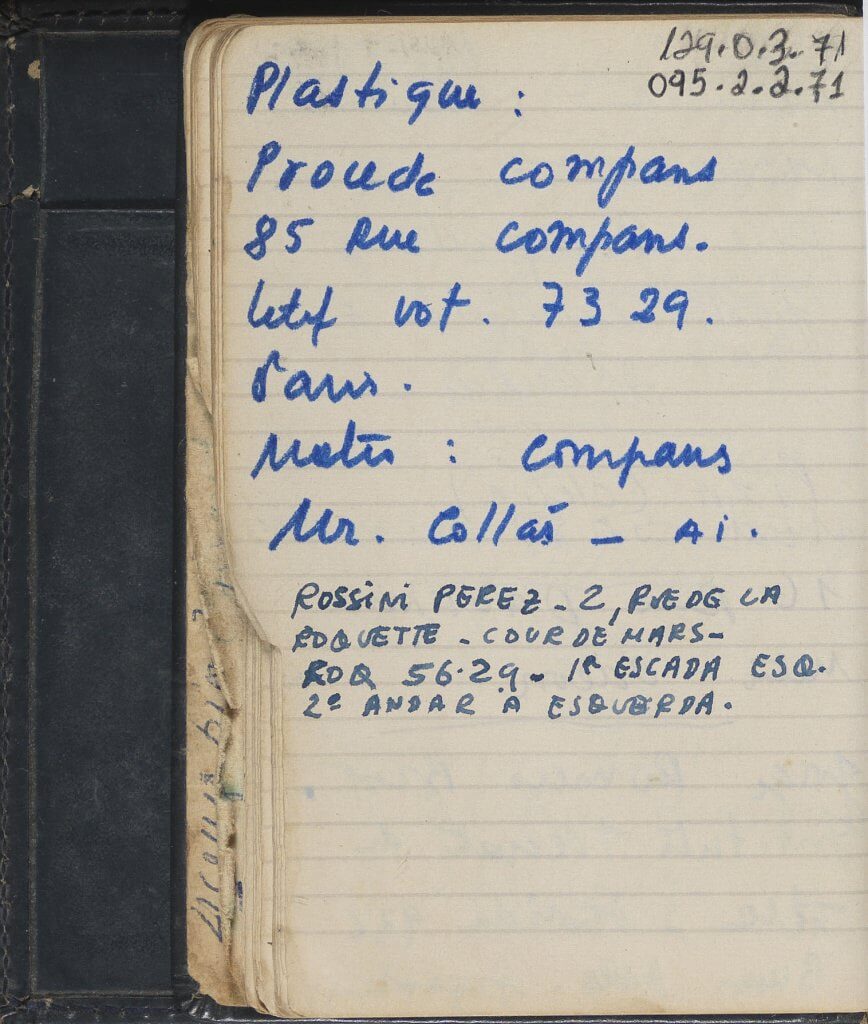 129.0.3.71
095.2.2.71
Plastique :
Procede compans
85 Rue compans.
Telef Bot. 73 29.
Paris.
Metro : compans
Mr. Collas _ Ai.
ROSSINI PEREZ - 2, RUE DE LA
ROQUETTE - COUR DE MARS -
ROQ 56.29 - 1ª ESCADA ESQ.
2º ANDAR À ESQUERDA.